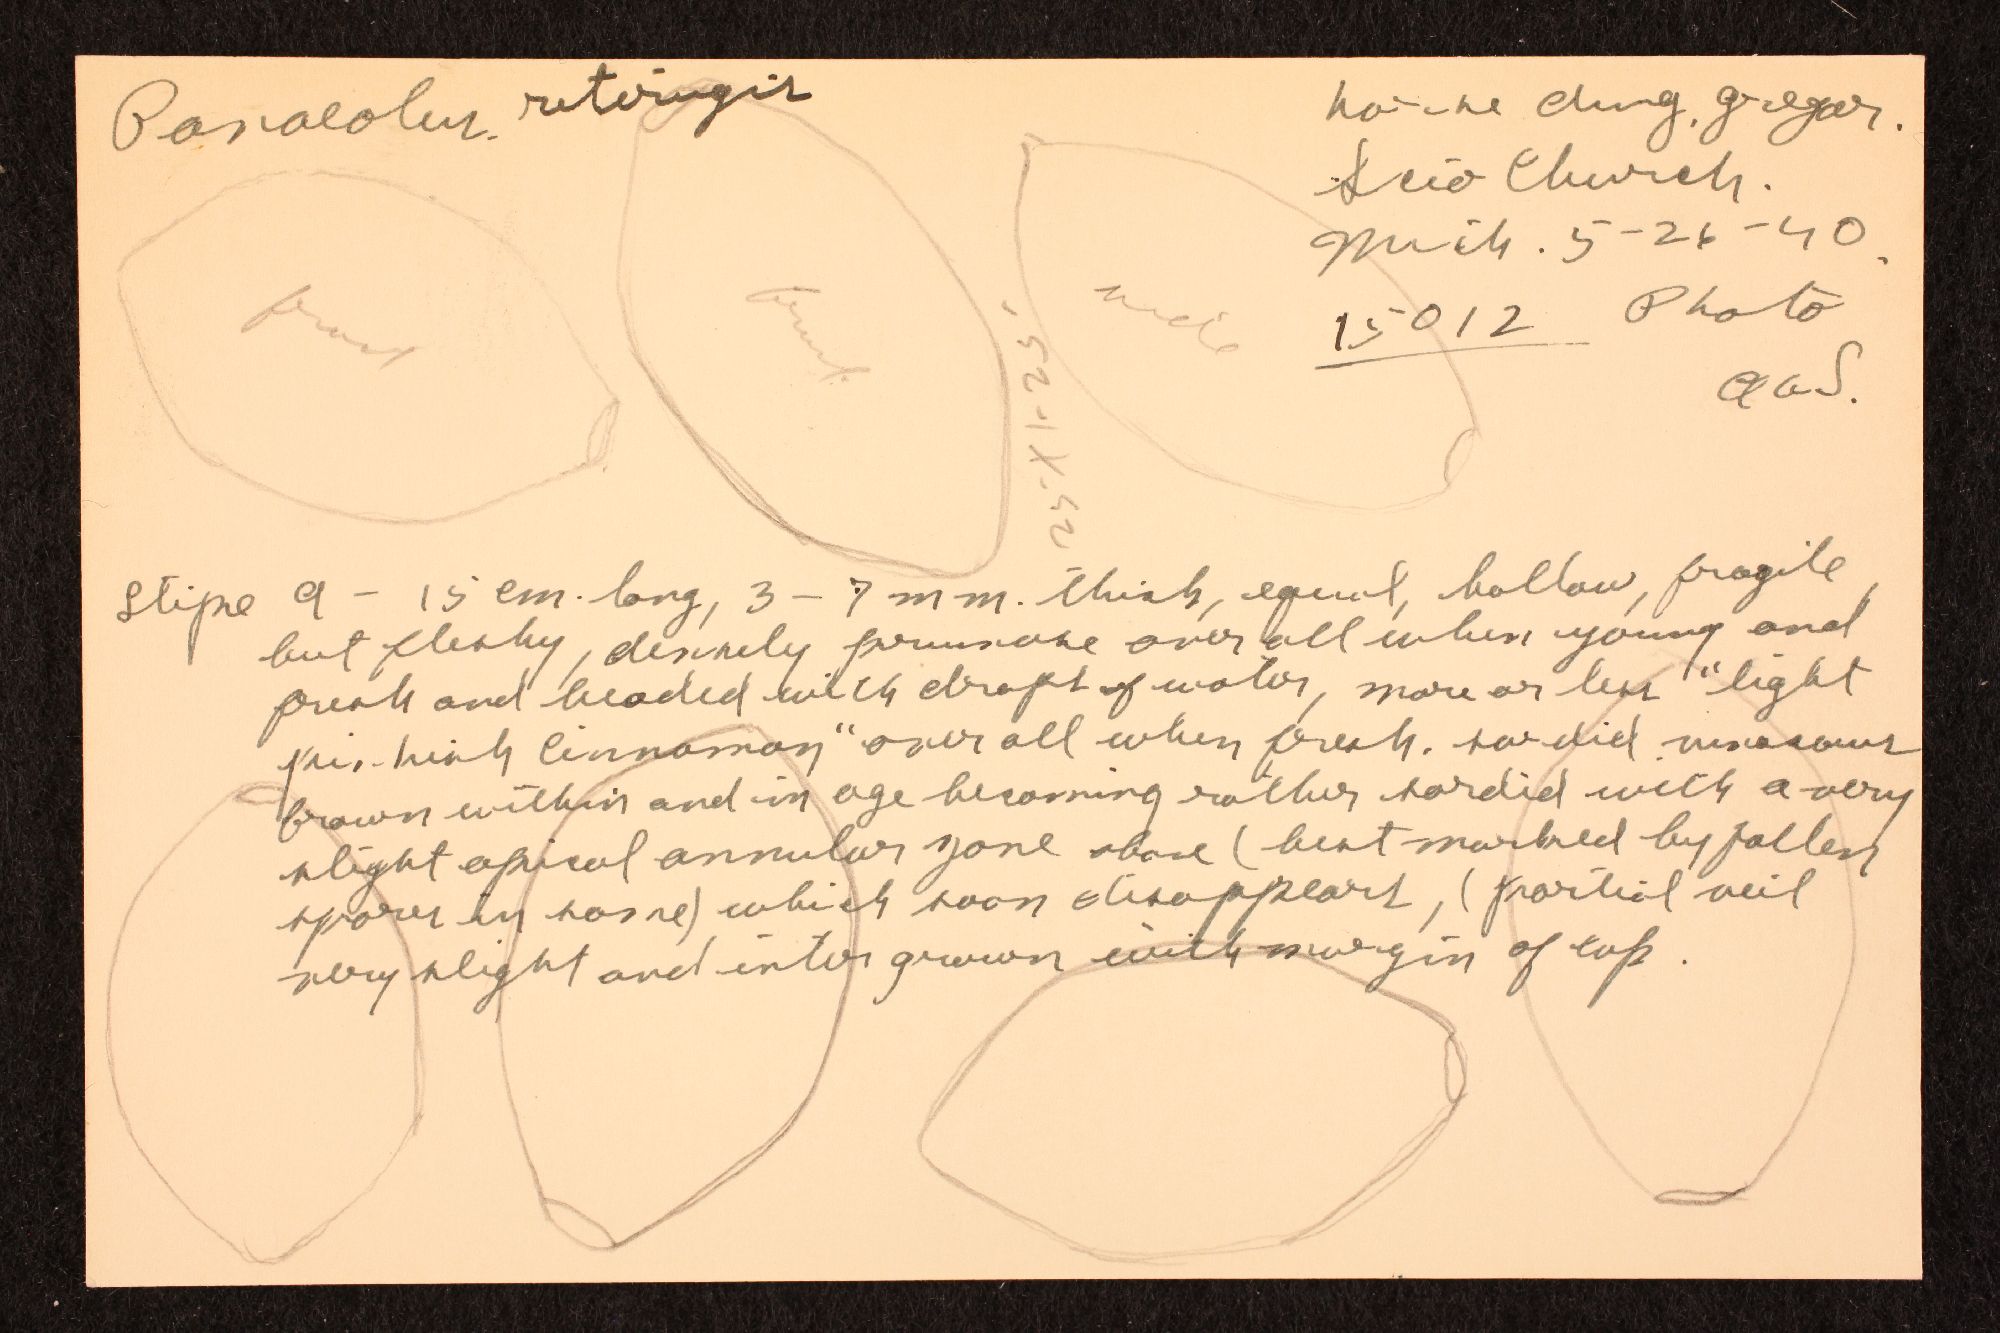 Panaeolus retirugis
horse dung, gregar.
Scio Church.
Mich. 5-26-40.
15012 Photo
AHS.
front
front
side
25 X 1.25
Stipe 9 - 15 cm. long, 3 - 7 mm. thick, equal, hollow, fragile,
but fleshy, densely pruinose over all when young and
fresh and beaded with drops of water, more or less "light
pinkish cinnamon" over all when fresh. sordid vinaceous
brown within and in age becoming rather sordid with a very
slight apical annular zone above (best marked by fallen
spores in some) which soon disappears, (partial veil
very slight and inter grown with margin of cap.